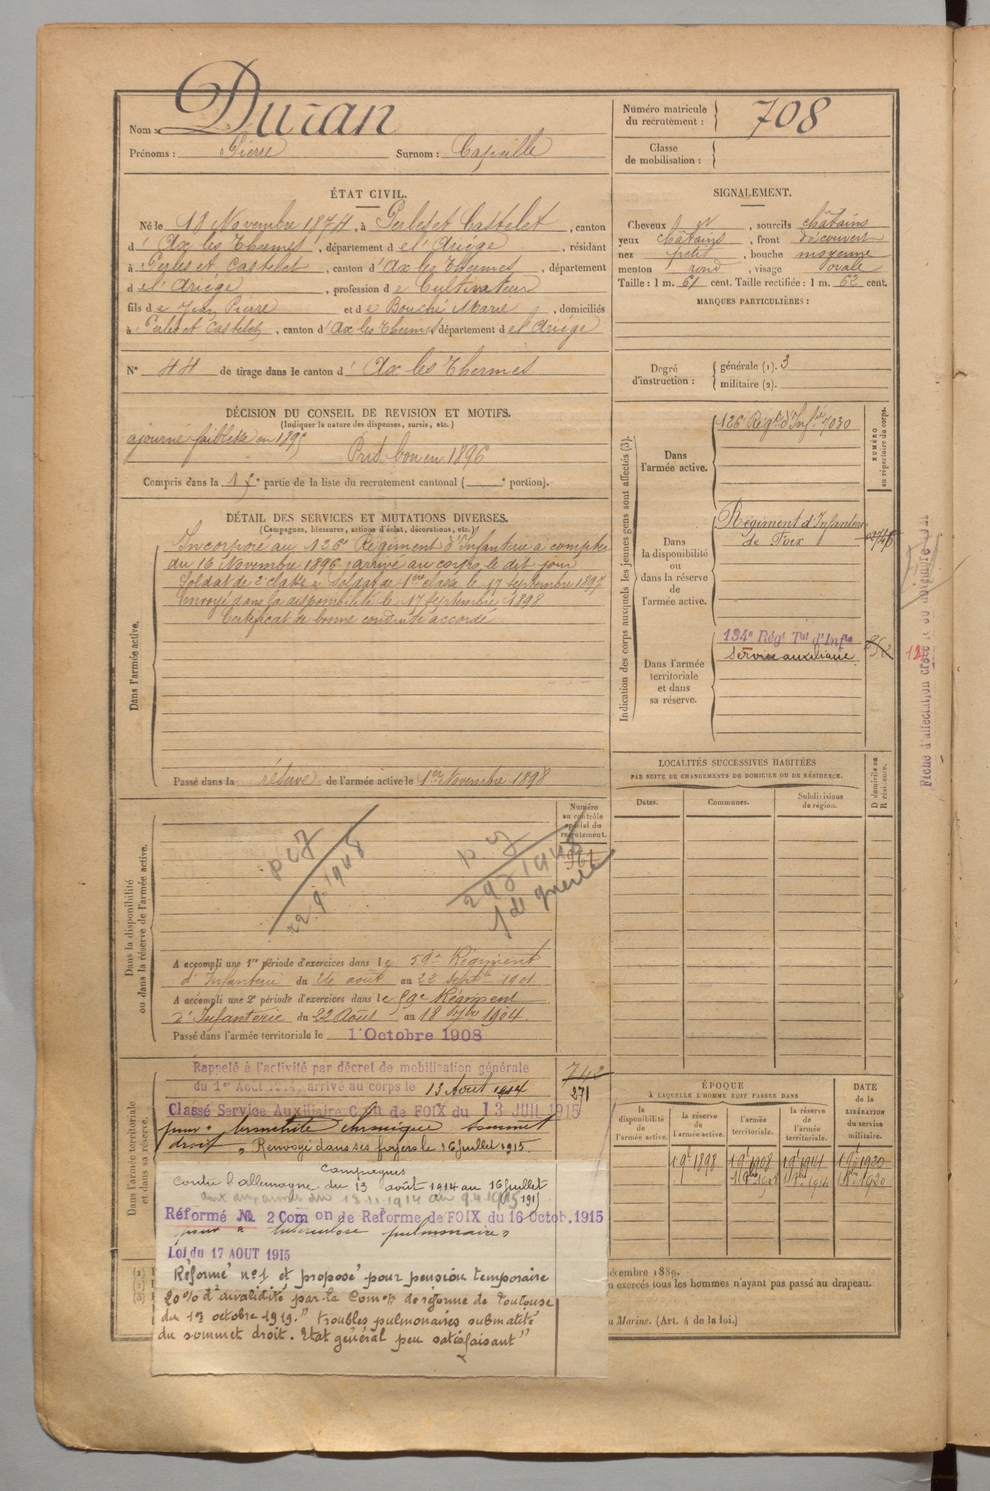 Nom : Duran
Prénoms : Pierre Surnom : Capeille
Numéro matricule du recrutement : 708
Classe de mobilisation :
ÉTAT CIVIL.
Né le 10 Novembre 1874, à Perles et Castelet, canton
d' Ax les Thermes, département de l'Ariège, résidant
à Perles et Castelet, canton d' Ax les Thermes, département
de l'Ariège, profession de Cultivateur
fils de Jean Pierre et de Bouché Marie, domiciliés
à Perles et Castelet, canton d' Ax les Thermes département de l'Ariège
N° 44 de tirage dans le canton d' Ax les Thermes
SIGNALEMENT.
Cheveux et, sourcils châtains
yeux châtains, front découvert
nez petit, bouche moyenne
menton rond, visage ovale
Taille : 1 m. 61 cent. Taille rectifiée : 1 m. 62 cent.
MARQUES PARTICULIÈRES :
Degré d'instruction :
générale (1). 3
militaire (2).
DÉCISION DU CONSEIL DE REVISION ET MOTIFS.
(Indiquer la nature des dispenses, sursis, etc.)
ajourné faiblesse en 1895
Prit bon en 1896
Compris dans la 1re partie de la liste du recrutement cantonal ( portion).
DÉTAIL DES SERVICES ET MUTATIONS DIVERSES.
(Campagnes, blessures, actions d'éclat, décorations, etc.)
Dans l'armée active.
Incorporé au 126e Régiment d'Infanterie à compter
du 16 Novembre 1896, arrivé au corps le dit jour
Soldat de 2e classe Soldat de 1ère classe le 17 Septembre 1897
envoyé dans la disponibilité le 17 Septembre 1898
Certificat de bonne conduite accordé
Passé dans la réserve de l'armée active le 1er Novembre 1898
Indication des corps auxquels les jeunes gens sont affectés (3).
NUMÉRO au répertoire du corps.
Dans l'armée active.
126e Régt d'Infie 7030
Dans la disponibilité ou dans la réserve de l'armée active.
Régiment d'Infanterie
de Foix
Dans l'armée territoriale et dans sa réserve.
134e Régt Tal d'Infie
Service auxiliaire
Fiche d'affectation créée le 30 novembre
LOCALITÉS SUCCESSIVES HABITÉES
PAR SUITE DE CHANGEMENTS DE DOMICILE OU DE RÉSIDENCE.
Dates. Communes. Subdivisions de région.
D domicile ou R résidence.
Dans la disponibilité ou dans la réserve de l'armée active.
Numéro au contrôle spécial du recrutement.
961
A accompli une 1re période d'exercices dans le 59e Régiment
d'Infanterie du août au 22 septe 1901
A accompli une 2e période d'exercices dans le 59e Régiment
d'Infanterie du 22 Août au 18 7bre 1904.
Passé dans l'armée territoriale le 1 Octobre 1908
Dans l'armée territoriale et dans sa réserve.
Rappelé à l'activité par décret de mobilisation générale
du 1er Août 1914, arrivé au corps le 13 Août 1914
271
Classé Service Auxiliaire Con de FOIX du 13 JUIL 1915
pour : bronchite chronique sommet
droit. Renvoyé dans ses foyers le 16 juillet 1915.
Campagnes
Contre l'allemagne du 13 août 1914 au 16 juillet
1915
Réformé No 2 Com on de Reforme de FOIX du 16 Octob. 1915
pour " tuberculose pulmonaire "
Loi du 17 AOUT 1915
Réformé n°1 et proposé pour pension temporaire
20% d'invalidité par la Comon de réforme de Toulouse
du 13 octobre 1919. " troubles pulmonaires submatité
du sommet droit. Etat général peu satisfaisant "
ÉPOQUE
À LAQUELLE L'HOMME DOIT PASSER DANS
la disponibilité de l'armée active.
la réserve de l'armée active.
l'armée territoriale.
la réserve de l'armée territoriale.
DATE de la LIBÉRATION du service militaire.
1 9bre 1898
écembre 1889.
exercés tous les hommes n'ayant pas passé au drapeau.
Marine. (Art. 4 de la loi.)